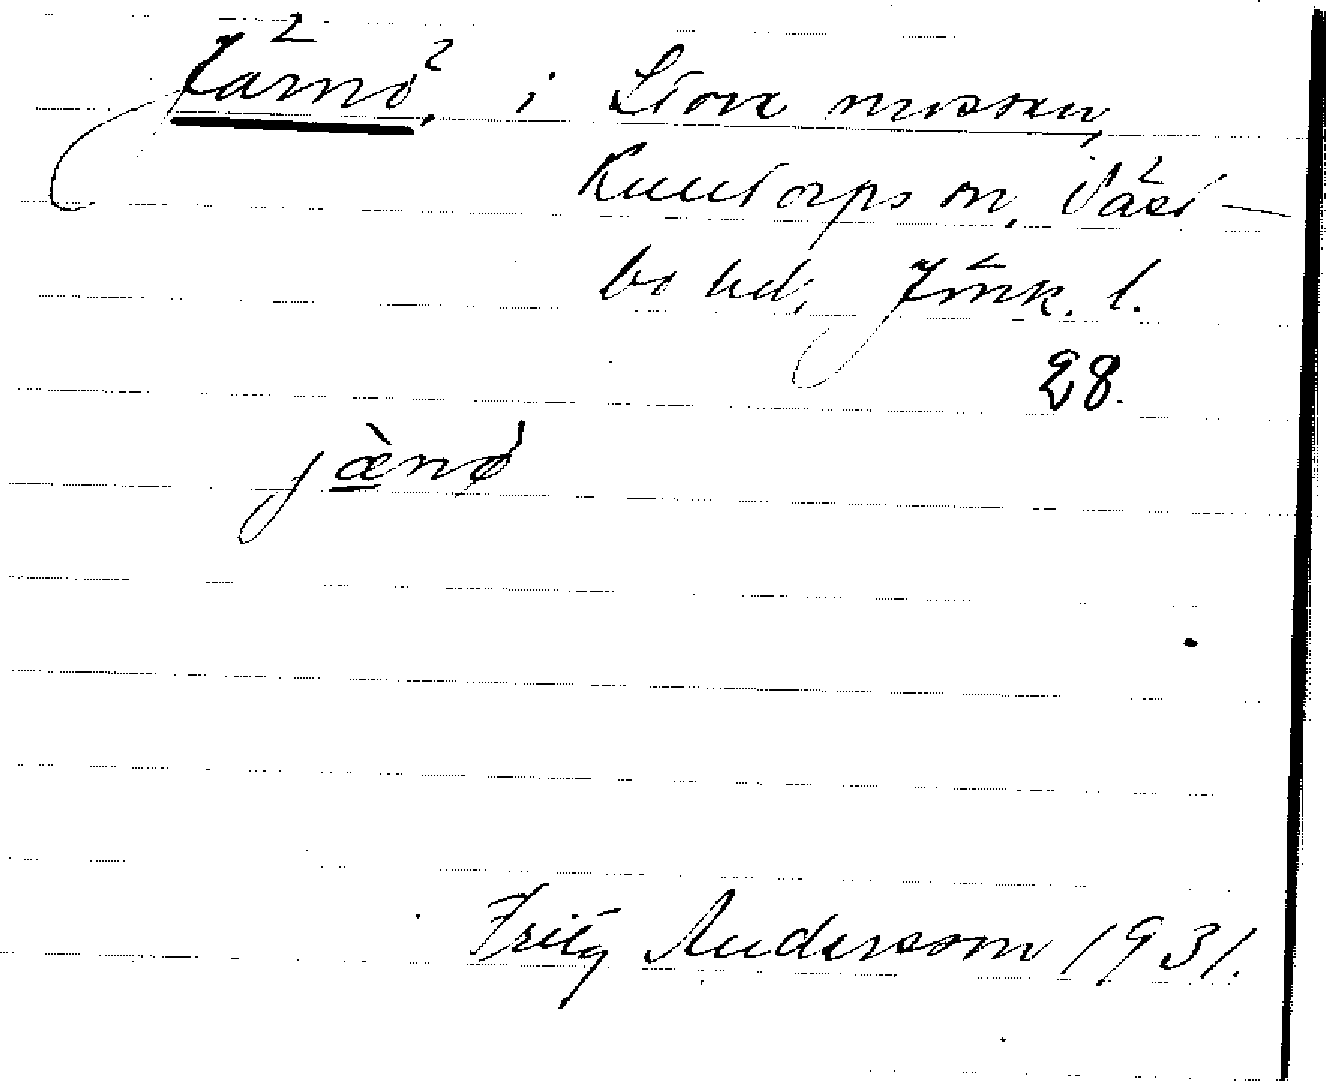 Järnö, i Stora mossen,
Kulltorps sn, Väst-
bo hd, Jönk. l.
28.
jæ̀nø
Fritz Andersson 1931.